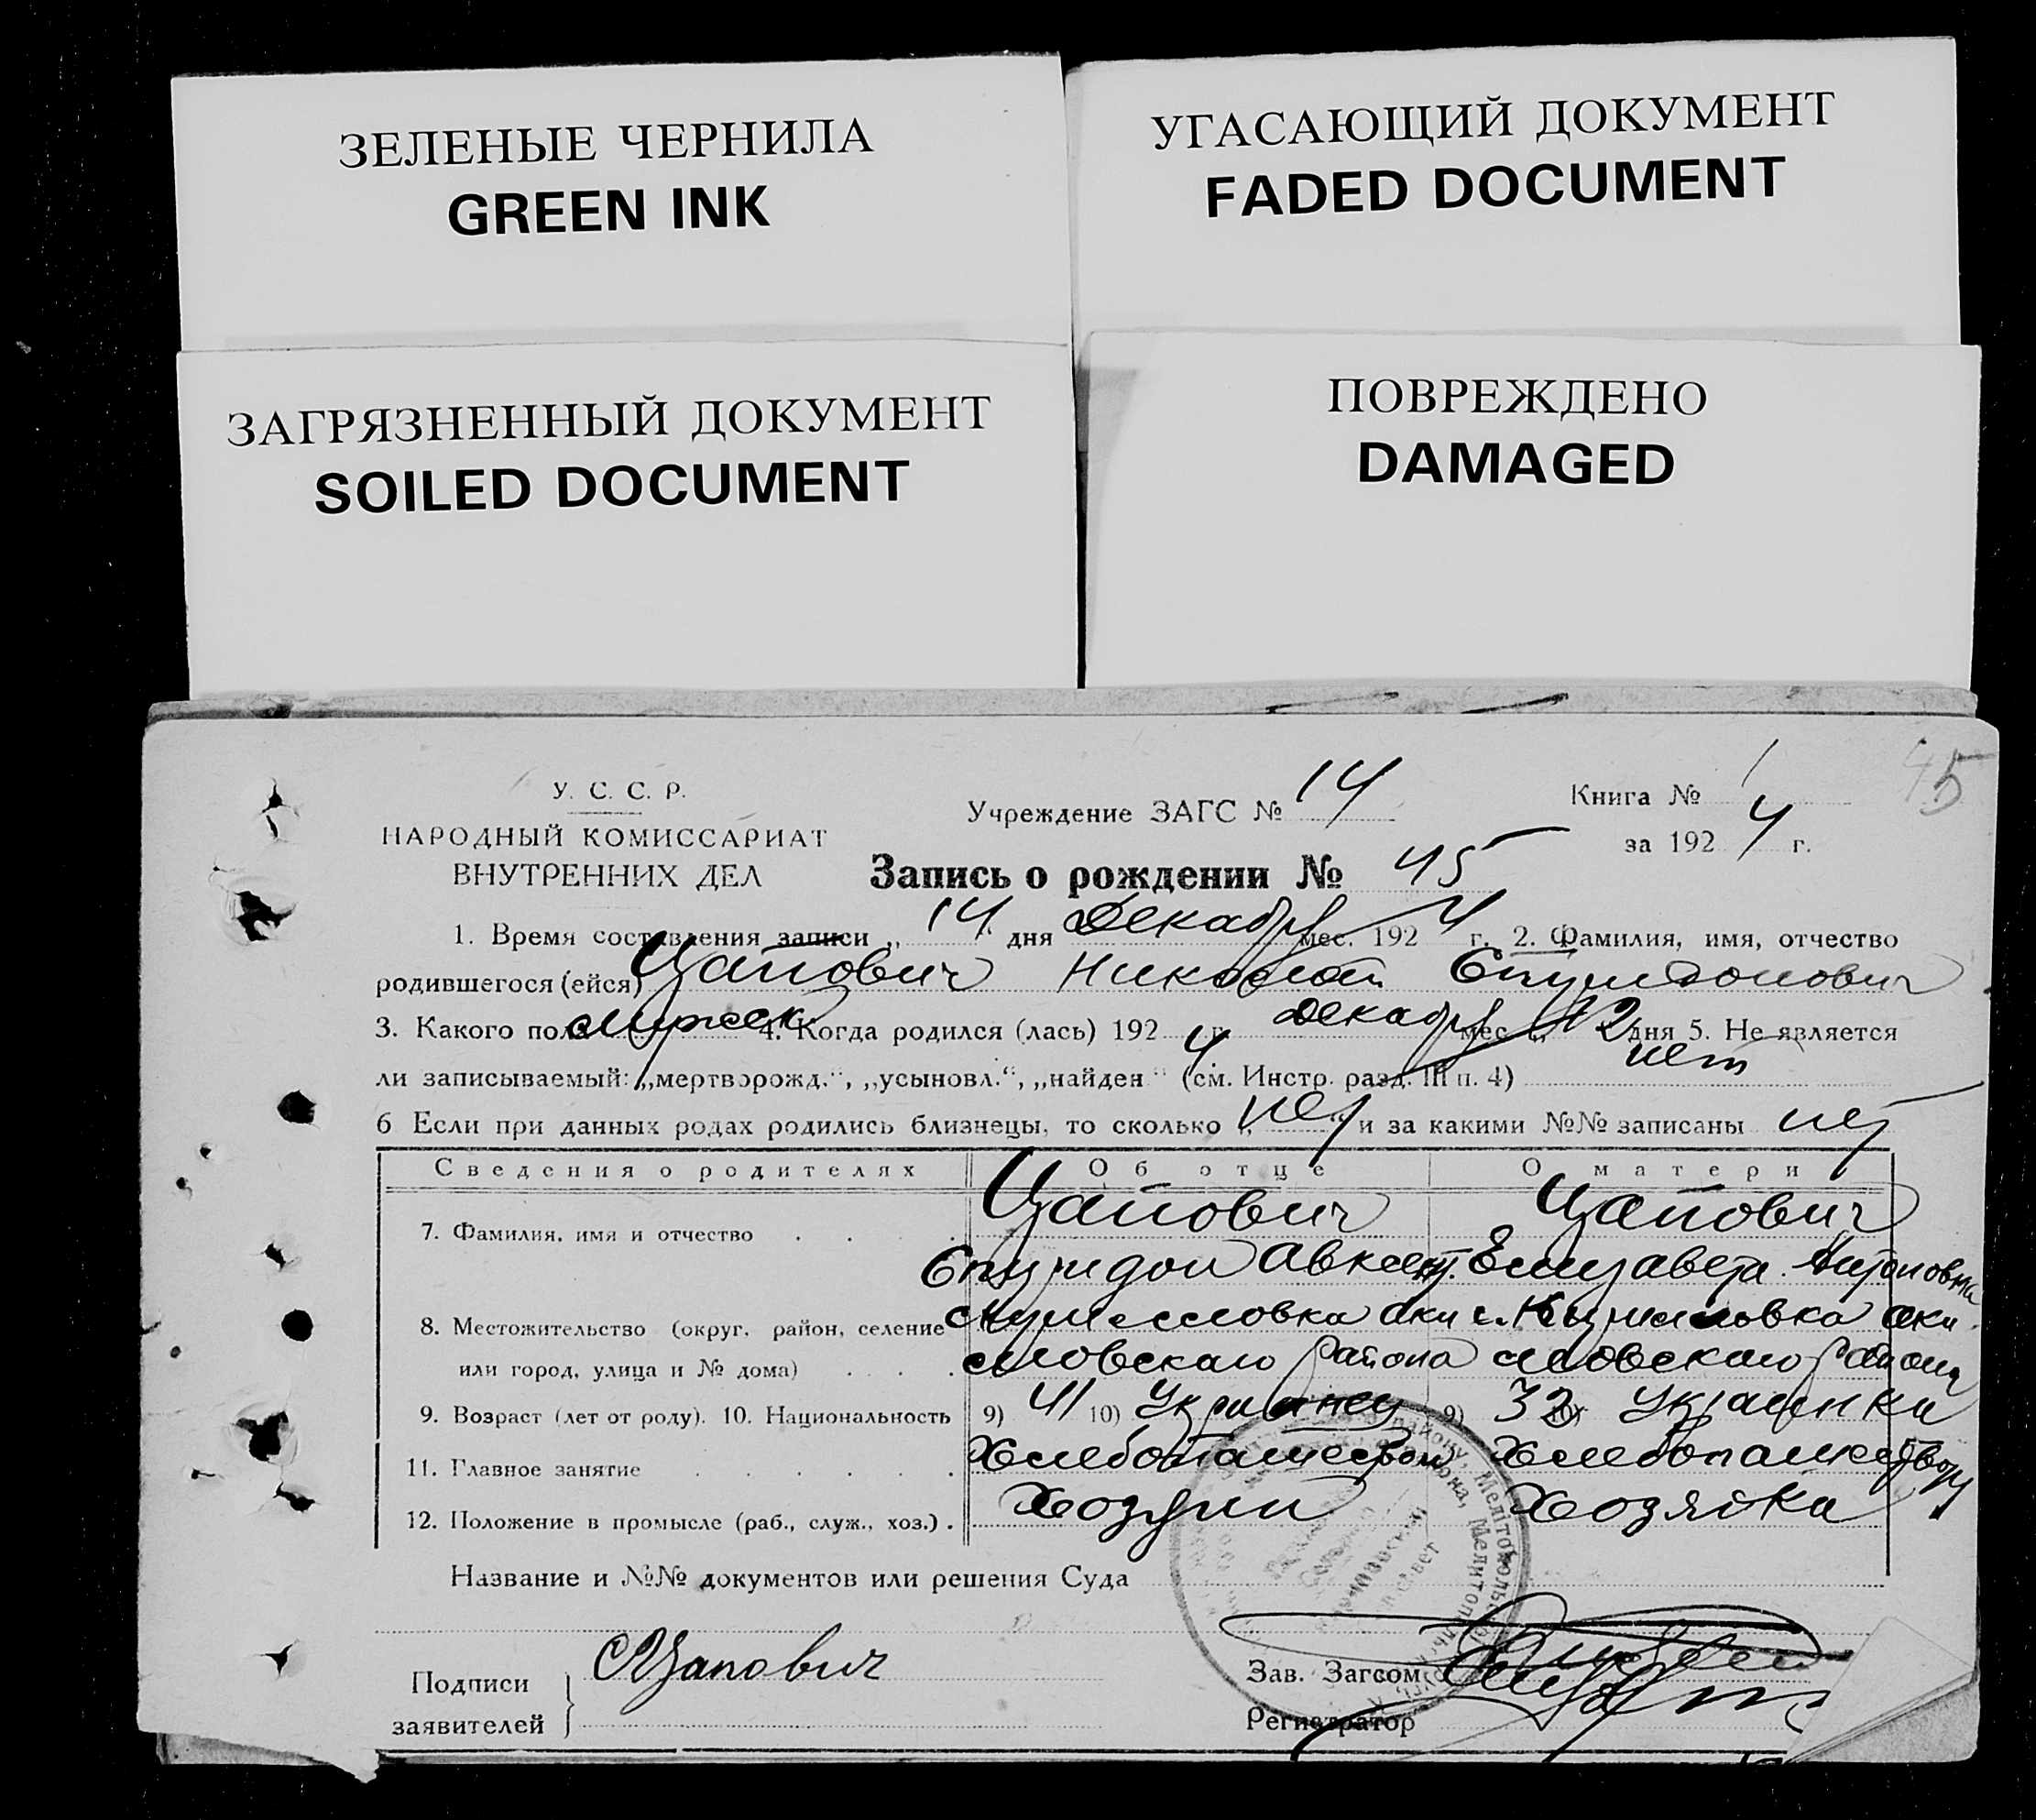 ЗЕЛЕНЫЕ ЧЕРНИЛА
GREEN INK
УГАСАЮЩИЙ ДОКУМЕНТ
FADED DOCUMENT
ЗАГРЯЗНЕННЫЙ ДОКУМЕНТ
SOILED DOCUMENT
ПОВРЕЖДЕНО
DAMAGED
45
У. С. С. Р.
НАРОДНЫЙ КОМИССАРИАТ
ВНУТРЕННИХ ДЕЛ
Учреждение ЗАГС № 14
Книга № 1
за 1924 г.
Запись о рождении № 45
1. Время составления записи „ 14 " дня Декабр мес. 1924 г. 2. Фамилия, имя, отчество
родившегося (ейся) Цапович Николай Спиридонович
3. Какого пола мужск 4. Когда родился (лась) 1924 г. Декабр мес „ 12 дня 5. Не является
ли записываемый: „мертворожд.“, „усыновл.“, „найден “ (см. Инстр. разд. III п. 4) нет
6 Если при данных родах родились близнецы, то сколько „ нет " и за какими №№ записаны нет
Сведения о родителях Об отце О матери
7. Фамилия, имя и отчество Цапович Цапович
Спиридон Авксент. Елизавета Антоновна
8. Местожительство (округ, район, селение
или город, улица и № дома) мовского района мовского района
9. Возраст (лет от роду). 10. Национальность 9) 41 10) Украинец 9) 32 10) Украинка
11. Главное занятие Хлебопашеством Хлебопашество
12. Положение в промысле (раб., служ., хоз.) . Хозяин Хозяйка
Название и №№ документов или решения Суда
Подписи
заявителей
Цапович
Зав. Загсом
Регистратор